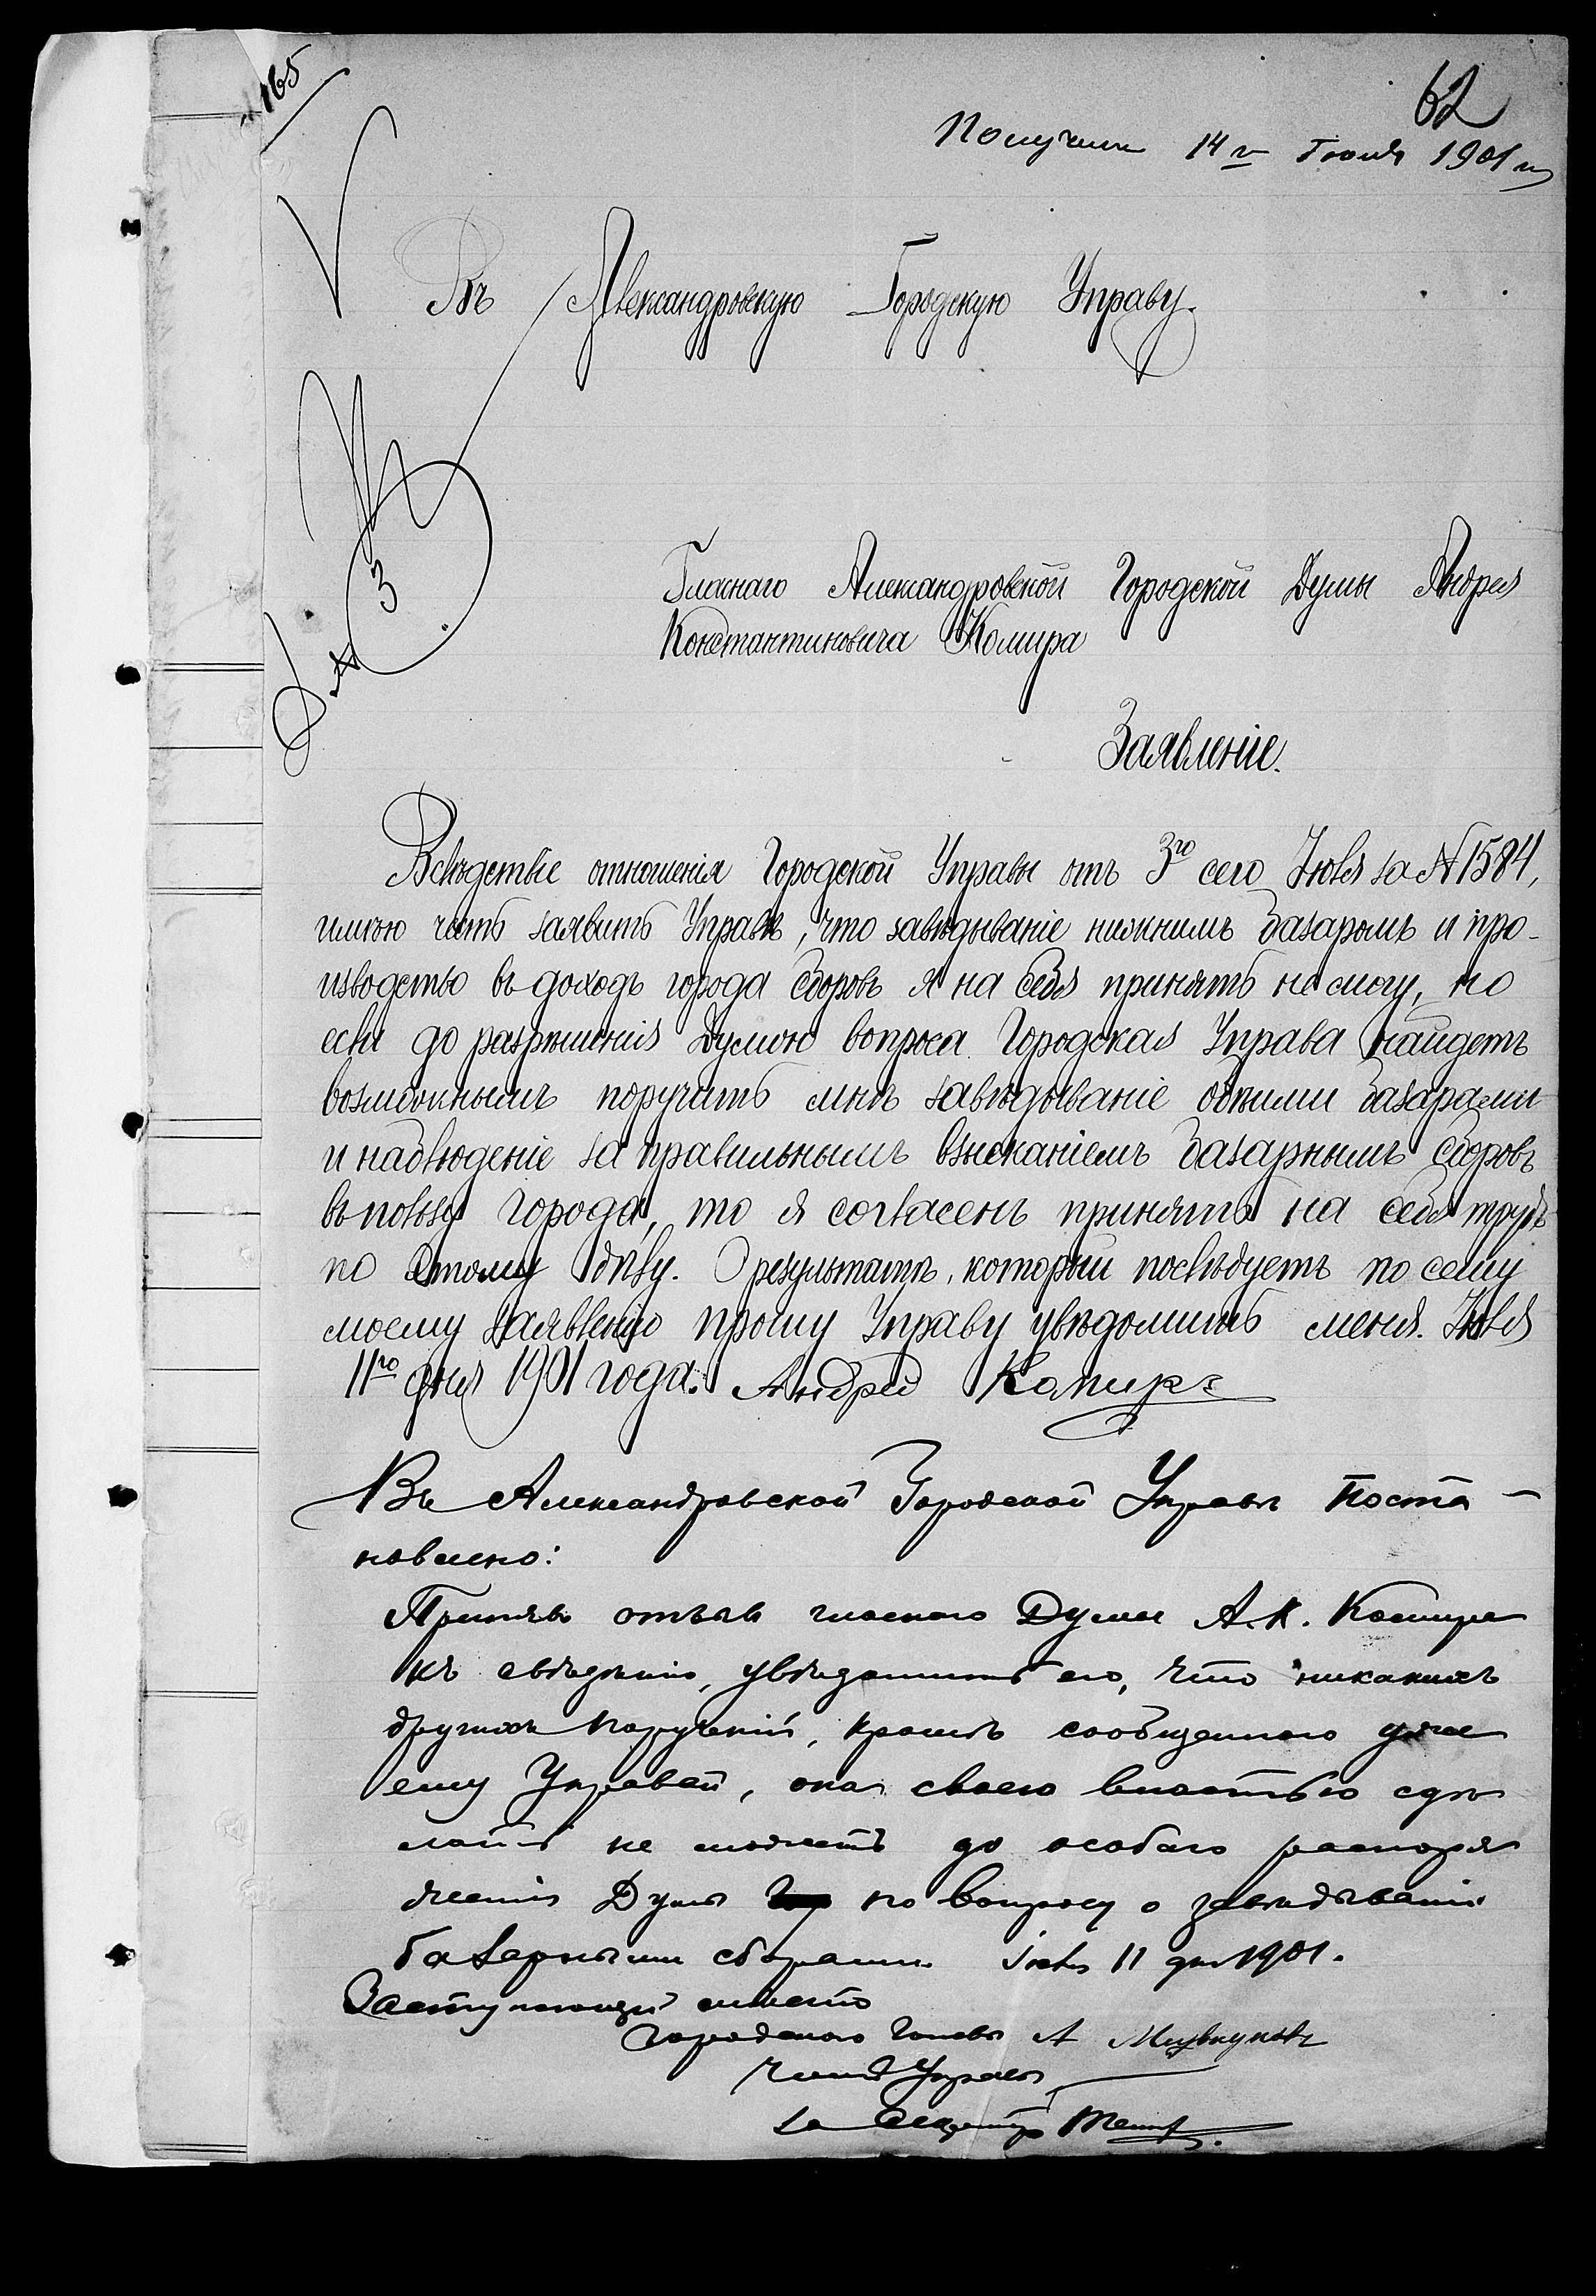 165
62
Получен 14го Июля 1901 г
Въ Александровскую Городскую Управу.
3
Гласнаго Александровской Городской Думы Андрея
Константиновича Комира
Заявленіе.
Вслѣдствіе отношенія Городской Управы отъ 3го сего Іюля за № 1584,
имѣю честь заявить Управѣ, что завѣдываніе нижнимъ базаромъ и про-
изводство въ доходъ города сборовъ я на себя принять не могу, но
если до разрѣшенія Думою вопроса Городская Управа найдетъ
возможнымъ поручить мнѣ завѣдываніе обѣими базарами
и наблюденіе за правильнымъ взысканіемъ базарнымъ сборовъ
въ пользу города, то я согласенъ принять на себя трудъ
по этому дѣлу. О результатѣ, который послѣдуетъ по сему
моему заявленію прошу Управу увѣдомить меня. Іюля
11го дня 1901 года. Андрей Комиръ
Въ Александровской Городской Управѣ Поста-
новлено:
Принявъ отзывъ гласнаго Думы А. К. Комира
къ свѣдѣнію, увѣдомить его, что никакихъ
другихъ порученій, кромѣ сообщеннаго уже
ему Управой, она своею властью сдѣ
лать не можетъ до особаго распоря
женія Думы по вопросу о завѣдываніи
базарными сборами. Іюля 11 дня 1901.
Заступающій мѣсто
Городского Головы А
Членъ Управы
за Секретаря